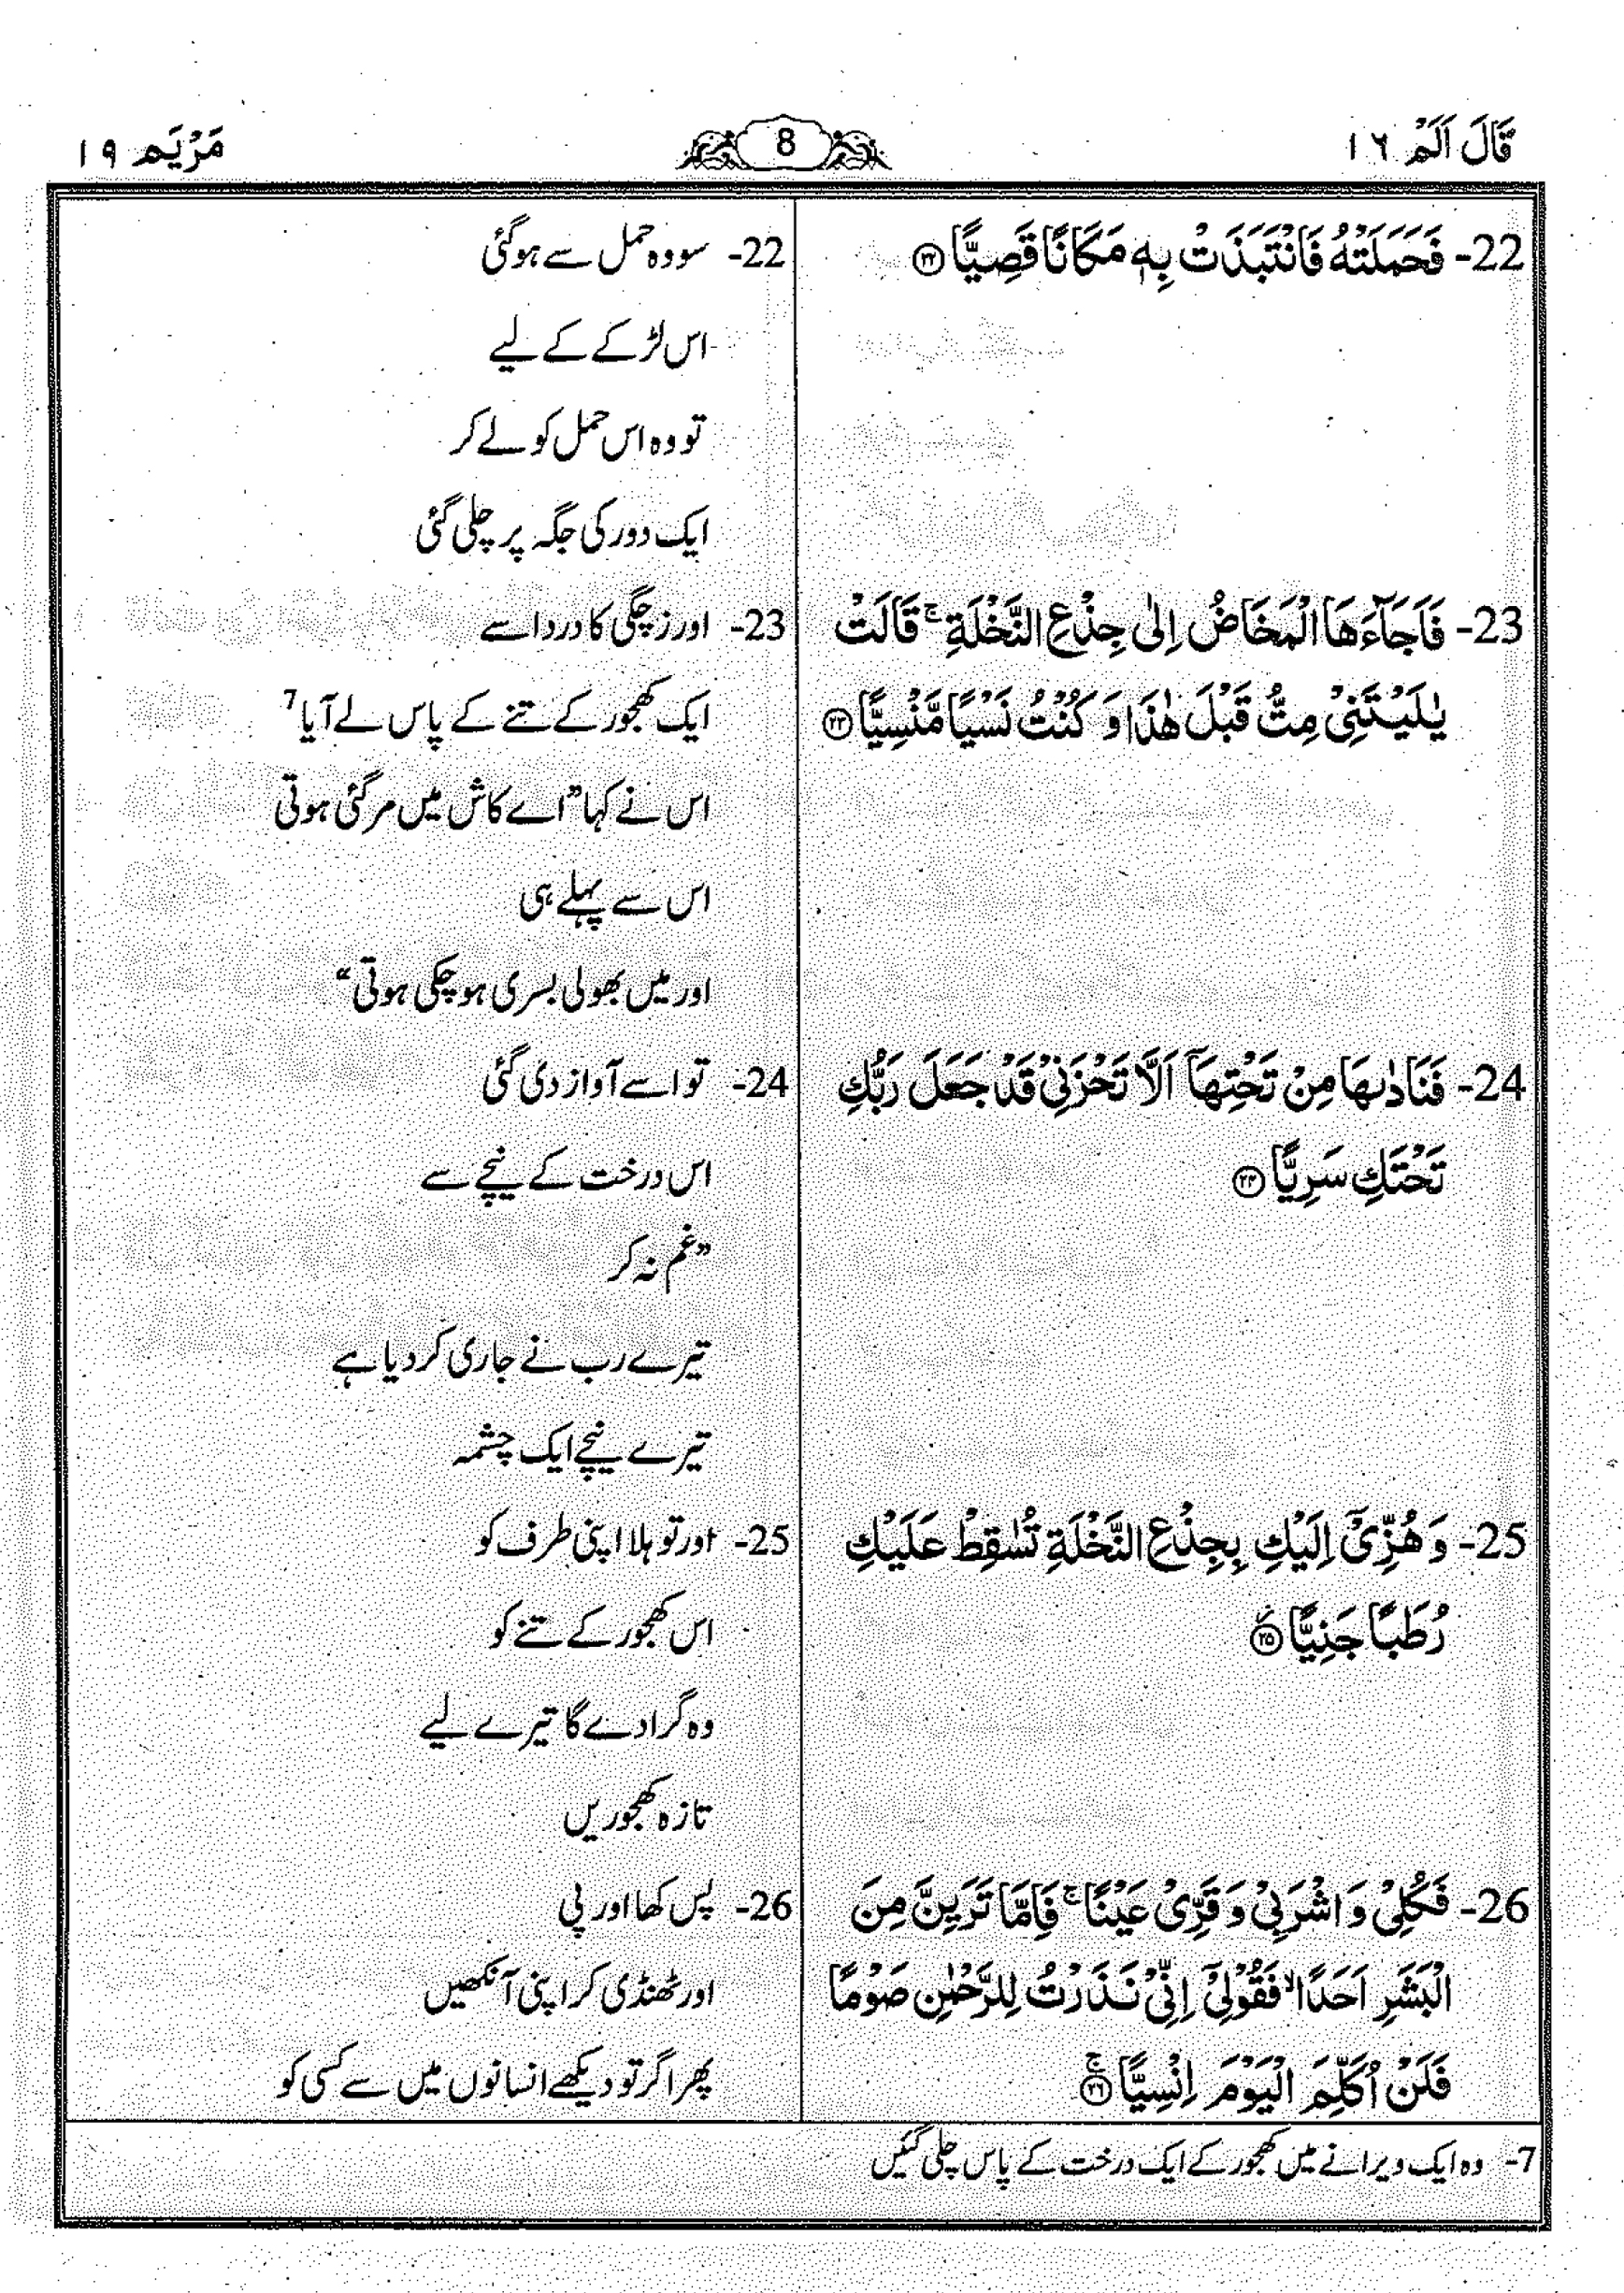 قَالَ اَلَمْ ١٦
8
مَرْيَم ١٩
22- فَحَمَلَتْهُ فَانْتَبَذَتْ بِهٖ مَكَانًا قَصِيًّا ﴿۲۲﴾
23- فَاَجَآءَهَا الْمَخَاضُ اِلٰى جِذْعِ النَّخْلَةِ ۚ قَالَتْ
يٰلَيْتَنِيْ مِتُّ قَبْلَ هٰذَا وَ كُنْتُ نَسْيًا مَّنْسِيًّا ﴿۲۳﴾
24- فَنَادٰىهَا مِنْ تَحْتِهَاۤ اَلَّا تَحْزَنِيْ قَدْ جَعَلَ رَبُّكِ
تَحْتَكِ سَرِيًّا ﴿۲۴﴾
25- وَ هُزِّيْۤ اِلَيْكِ بِجِذْعِ النَّخْلَةِ تُسٰقِطْ عَلَيْكِ
رُطَبًا جَنِيًّا ﴿۲۵﴾
26- فَكُلِيْ وَ اشْرَبِيْ وَ قَرِّيْ عَيْنًا ۚ فَاِمَّا تَرَيِنَّ مِنَ
الْبَشَرِ اَحَدًا ۙ فَقُوْلِيْۤ اِنِّيْ نَذَرْتُ لِلرَّحْمٰنِ صَوْمًا
فَلَنْ اُكَلِّمَ الْيَوْمَ اِنْسِيًّا ﴿۲۶﴾
22- سو وہ حمل سے ہو گئی
اس لڑکے کے لیے
تو وہ اس حمل کو لے کر
ایک دور کی جگہ پر چلی گئی
23- اور زچگی کا درد اسے
ایک کھجور کے تنے کے پاس لے آیا 7
اس نے کہا ”اے کاش میں مر گئی ہوتی
اس سے پہلے ہی
اور میں بھولی بسری ہو چکی ہوتی“
24- تو اسے آواز دی گئی
اس درخت کے نیچے سے
”غم نہ کر
تیرے رب نے جاری کر دیا ہے
تیرے نیچے ایک چشمہ
25- اور تو ہلا اپنی طرف کو
اس کھجور کے تنے کو
وہ گرا دے گا تیرے لیے
تازہ کھجوریں
26- پس کھا اور پی
اور ٹھنڈی کر اپنی آنکھیں
پھر اگر تو دیکھے انسانوں میں سے کسی کو
7- وہ ایک ویرانے میں کھجور کے ایک درخت کے پاس چلی گئیں